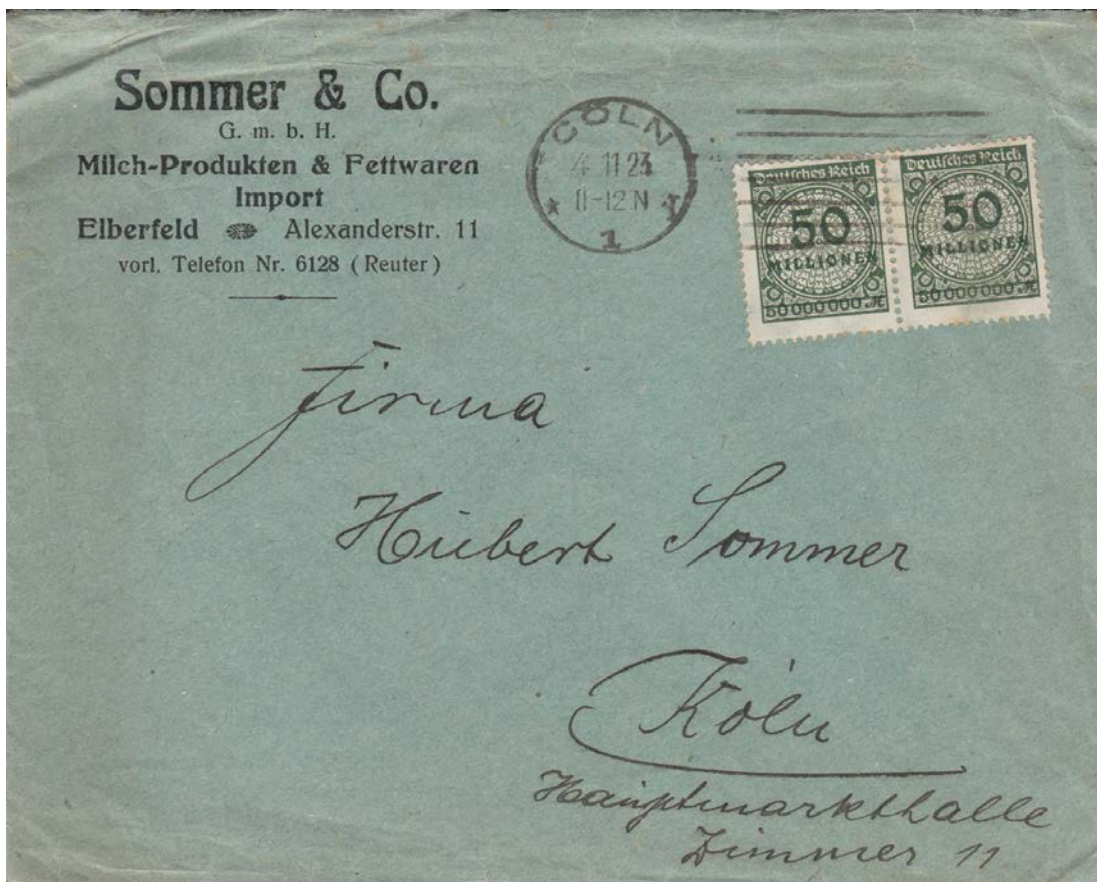 Sommer & Co.
G. m. b. H.
Milch-Produkten & Fettwaren
Import
Elberfeld Alexanderstr. 11
vorl. Telefon Nr. 6128 (Reuter)
CÖLN
4 11 23
11-12 N
★ 1 T
Deutsches Reich
50
MILLIONEN
50000000.M
Deutsches Reich
50
MILLIONEN
50000000.M
Firma
Hubert Sommer
Köln
Hauptmarkthalle
Zimmer 11